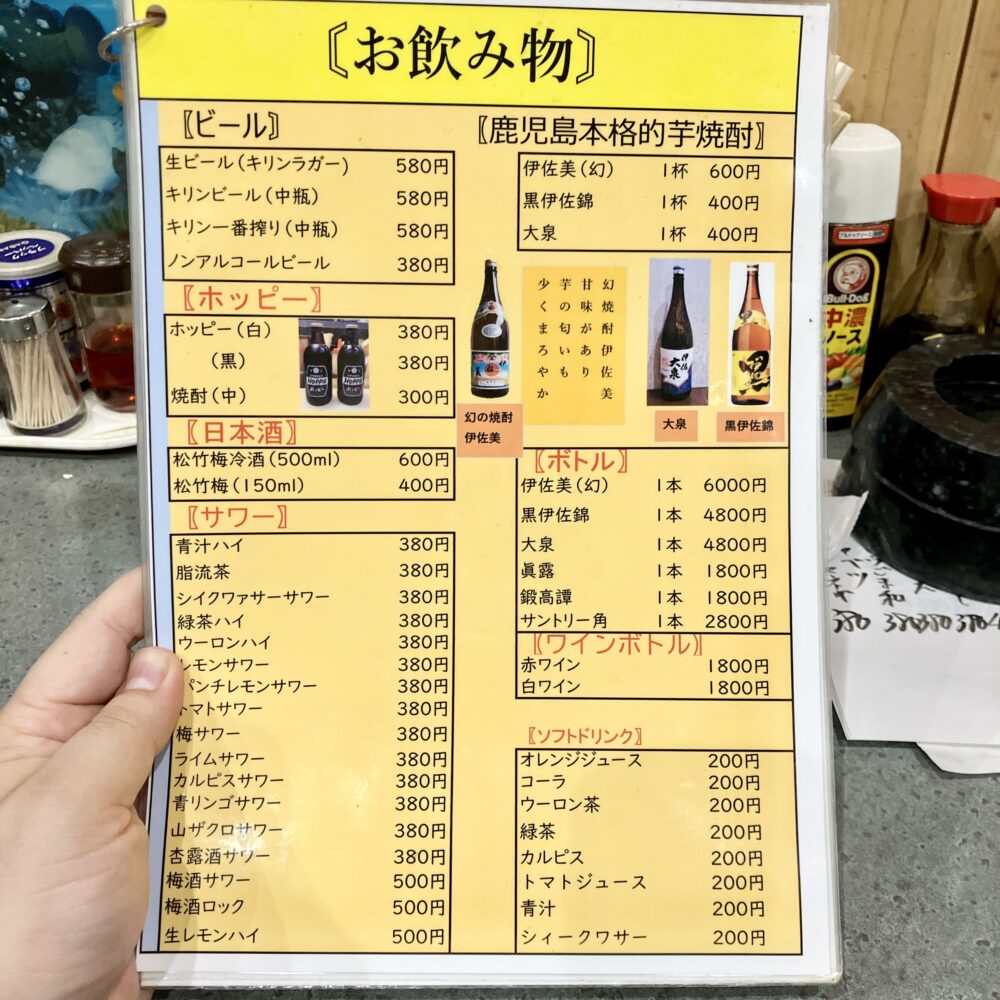 〘お飲み物〙
〖ビール〗
生ビール(キリンラガー) 580円
キリンビール(中瓶) 580円
キリン一番搾り(中瓶) 580円
ノンアルコールビール 380円
〖ホッピー〗
ホッピー(白) 380円
(黒) 380円
焼酎(中) 300円
〖日本酒〗
松竹梅冷酒(500ml) 600円
松竹梅(150ml) 400円
〖サワー〗
青汁ハイ 380円
脂流茶 380円
シイクワァサーサワー 380円
緑茶ハイ 380円
ウーロンハイ 380円
レモンサワー 380円
パンチレモンサワー 380円
トマトサワー 380円
梅サワー 380円
ライムサワー 380円
カルピスサワー 380円
青リンゴサワー 380円
山ザクロサワー 380円
杏露酒サワー 380円
梅酒サワー 500円
梅酒ロック 500円
生レモンハイ 500円
〖鹿児島本格的芋焼酎〗
伊佐美(幻) 1杯 600円
黒伊佐錦 1杯 400円
大泉 1杯 400円
幻焼酎伊佐美
甘味があり
芋の匂いも
少くまろやか
幻の焼酎
伊佐美
大泉
黒伊佐錦
〖ボトル〗
伊佐美(幻) 1本 6000円
黒伊佐錦 1本 4800円
大泉 1本 4800円
眞露 1本 1800円
鍛高譚 1本 1800円
サントリー角 1本 2800円
〖ワインボトル〗
赤ワイン 1800円
白ワイン 1800円
〖ソフトドリンク〗
オレンジジュース 200円
コーラ 200円
ウーロン茶 200円
緑茶 200円
カルピス 200円
トマトジュース 200円
青汁 200円
シィークワサー 200円
Bull-Dog
中濃
ソース